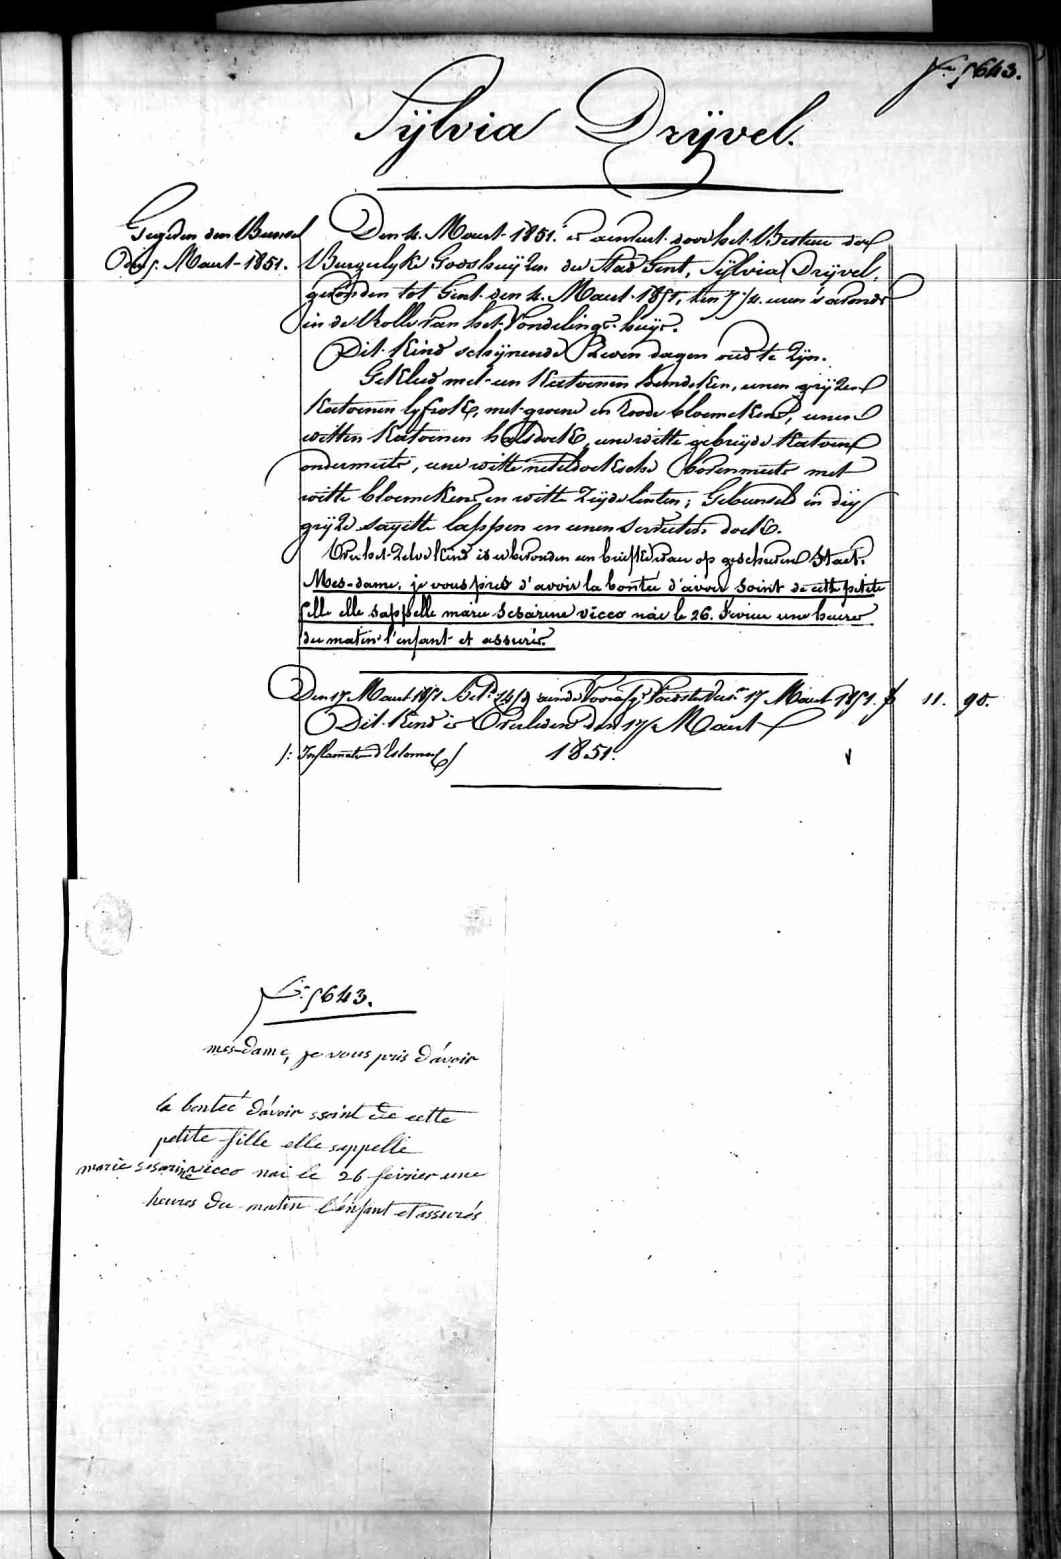 N.° 5643.
Sÿlvia Drÿvel.
Gegeven den Borssel
den 5. Maart 1851.
Den 4. Maart 1851. is aenveert door het Bestier der
Burgerlyke Godshuÿzen der Stad Gent, Sÿlvia Drÿvel,
gevonden tot Gent den 4. Maart 1851, ten 7 1/4 uren 's avonds
in de Rolle van het Vondelings-huÿs.
Dit Kind schÿnende Zeven dagen oud te Zÿn.
Gekleed met een Kattoenen hemdeken, eenen grÿzen
Kattoenen lyfrok, met groene en Roode bloemekens, eenen
witten Kattoenen halsdoek, eene witte gebreÿde Kattoene
ondermuts, eene witte neteldoeksche bovenmuts met
witte bloemekens en witte Zÿde linten; Gebunseld in drÿ
grÿze sayette lappen en eenen servetten doek.
Over het Zelve Kind is er bevonden een briefke waer op geschreven Staet.
Mes-dame, je vous pries d'avoir la bontéé d'avoir soint de cette petite
fille elle sappelle marie Sesarine vicco née le 26. fevrier une heures
du matin l'enfant et assurés.
Den 17 Maart 1851 17 Maart 1851. f 11. 90.
Dit Kind is Overleden den 17 Maart
/: Inflamatie d'Estomac :/ 1851.
N.° 5643.
mes-dame, je vous pris d'avoir
la bonteé d'avoir ssoint de cette
petite fille elle sappelle
marie sesarine vicco nai le 26 fevrier une
heures du matin l'énfant et assurés